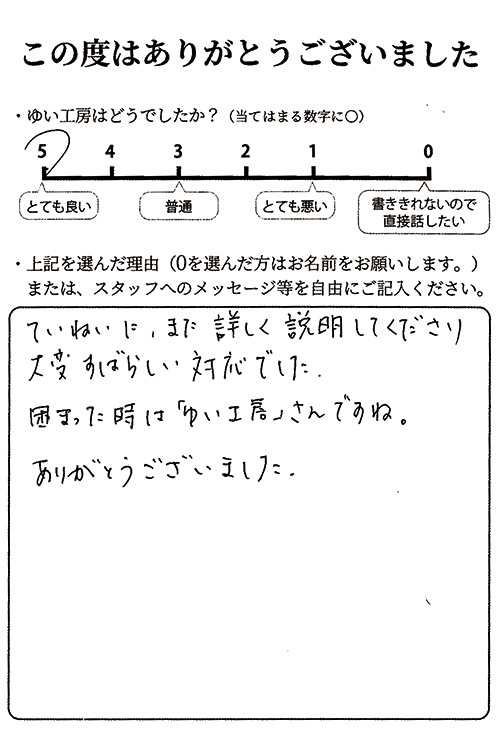 この度はありがとうございました
・ゆい工房はどうでしたか？（当てはまる数字に○）
5 4 3 2 1 0
とても良い 普通 とても悪い 書ききれないので
直接話したい
・上記を選んだ理由（0を選んだ方はお名前をお願いします。）
または、スタッフへのメッセージ等を自由にご記入ください。
ていねいに、また 詳しく 説明してくださり
大変すばらしい 対応でした.
困まった時は「ゆい工房」さんですね。
ありがとうございました.